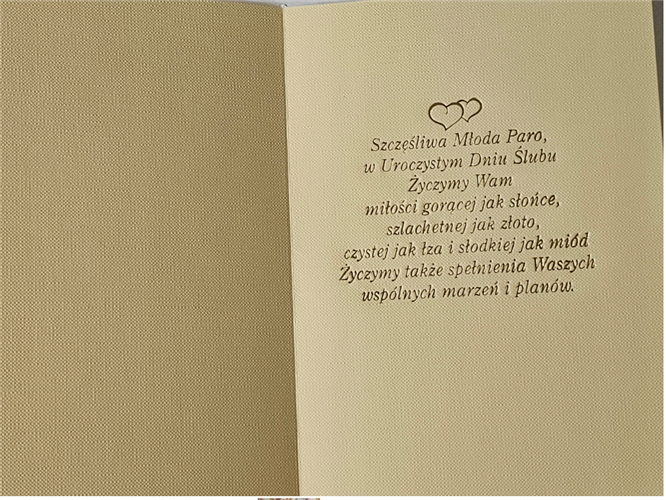 Szczęśliwa Młoda Paro,
w Uroczystym Dniu Ślubu
Życzymy Wam
miłości gorącej jak słońce,
szlachetnej jak złoto,
czystej jak łza i słodkiej jak miód
Życzymy także spełnienia Waszych
wspólnych marzeń i planów.